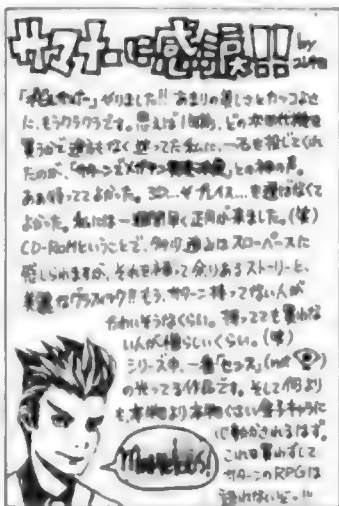 サマナーに感涙!! by
「デビルサマナー」やりました!! あまりの美しさとカッコよさ
に、もうクラクラです。思えば1年前、どの次世代機を
買うかで迷ってた私に、一石を投じてくれ
たのが、「サターンでメガテン」との神の声。
ああ待っててよかった。3DO…やプレイス…を選ばなくて
よかった。私には一週間早く正月が来ました。(笑)
CD-ROMということで、多少進みはスローペースに
感じられますが、それを補って余りあるストーリーと、
美麗なグラフィック!! もう、サターン持ってない人が
かわいそうなくらい。持ってても買わな
い人が惜らしいくらい。(笑)
シリーズ中、一番「センス」(not 👁)
の光ってる作品です。そして何より
も、本物より本物くさい
に動かされるはず。
これを買わずして
サターンのRPGは
語れないぞ。!!
Marvelous!